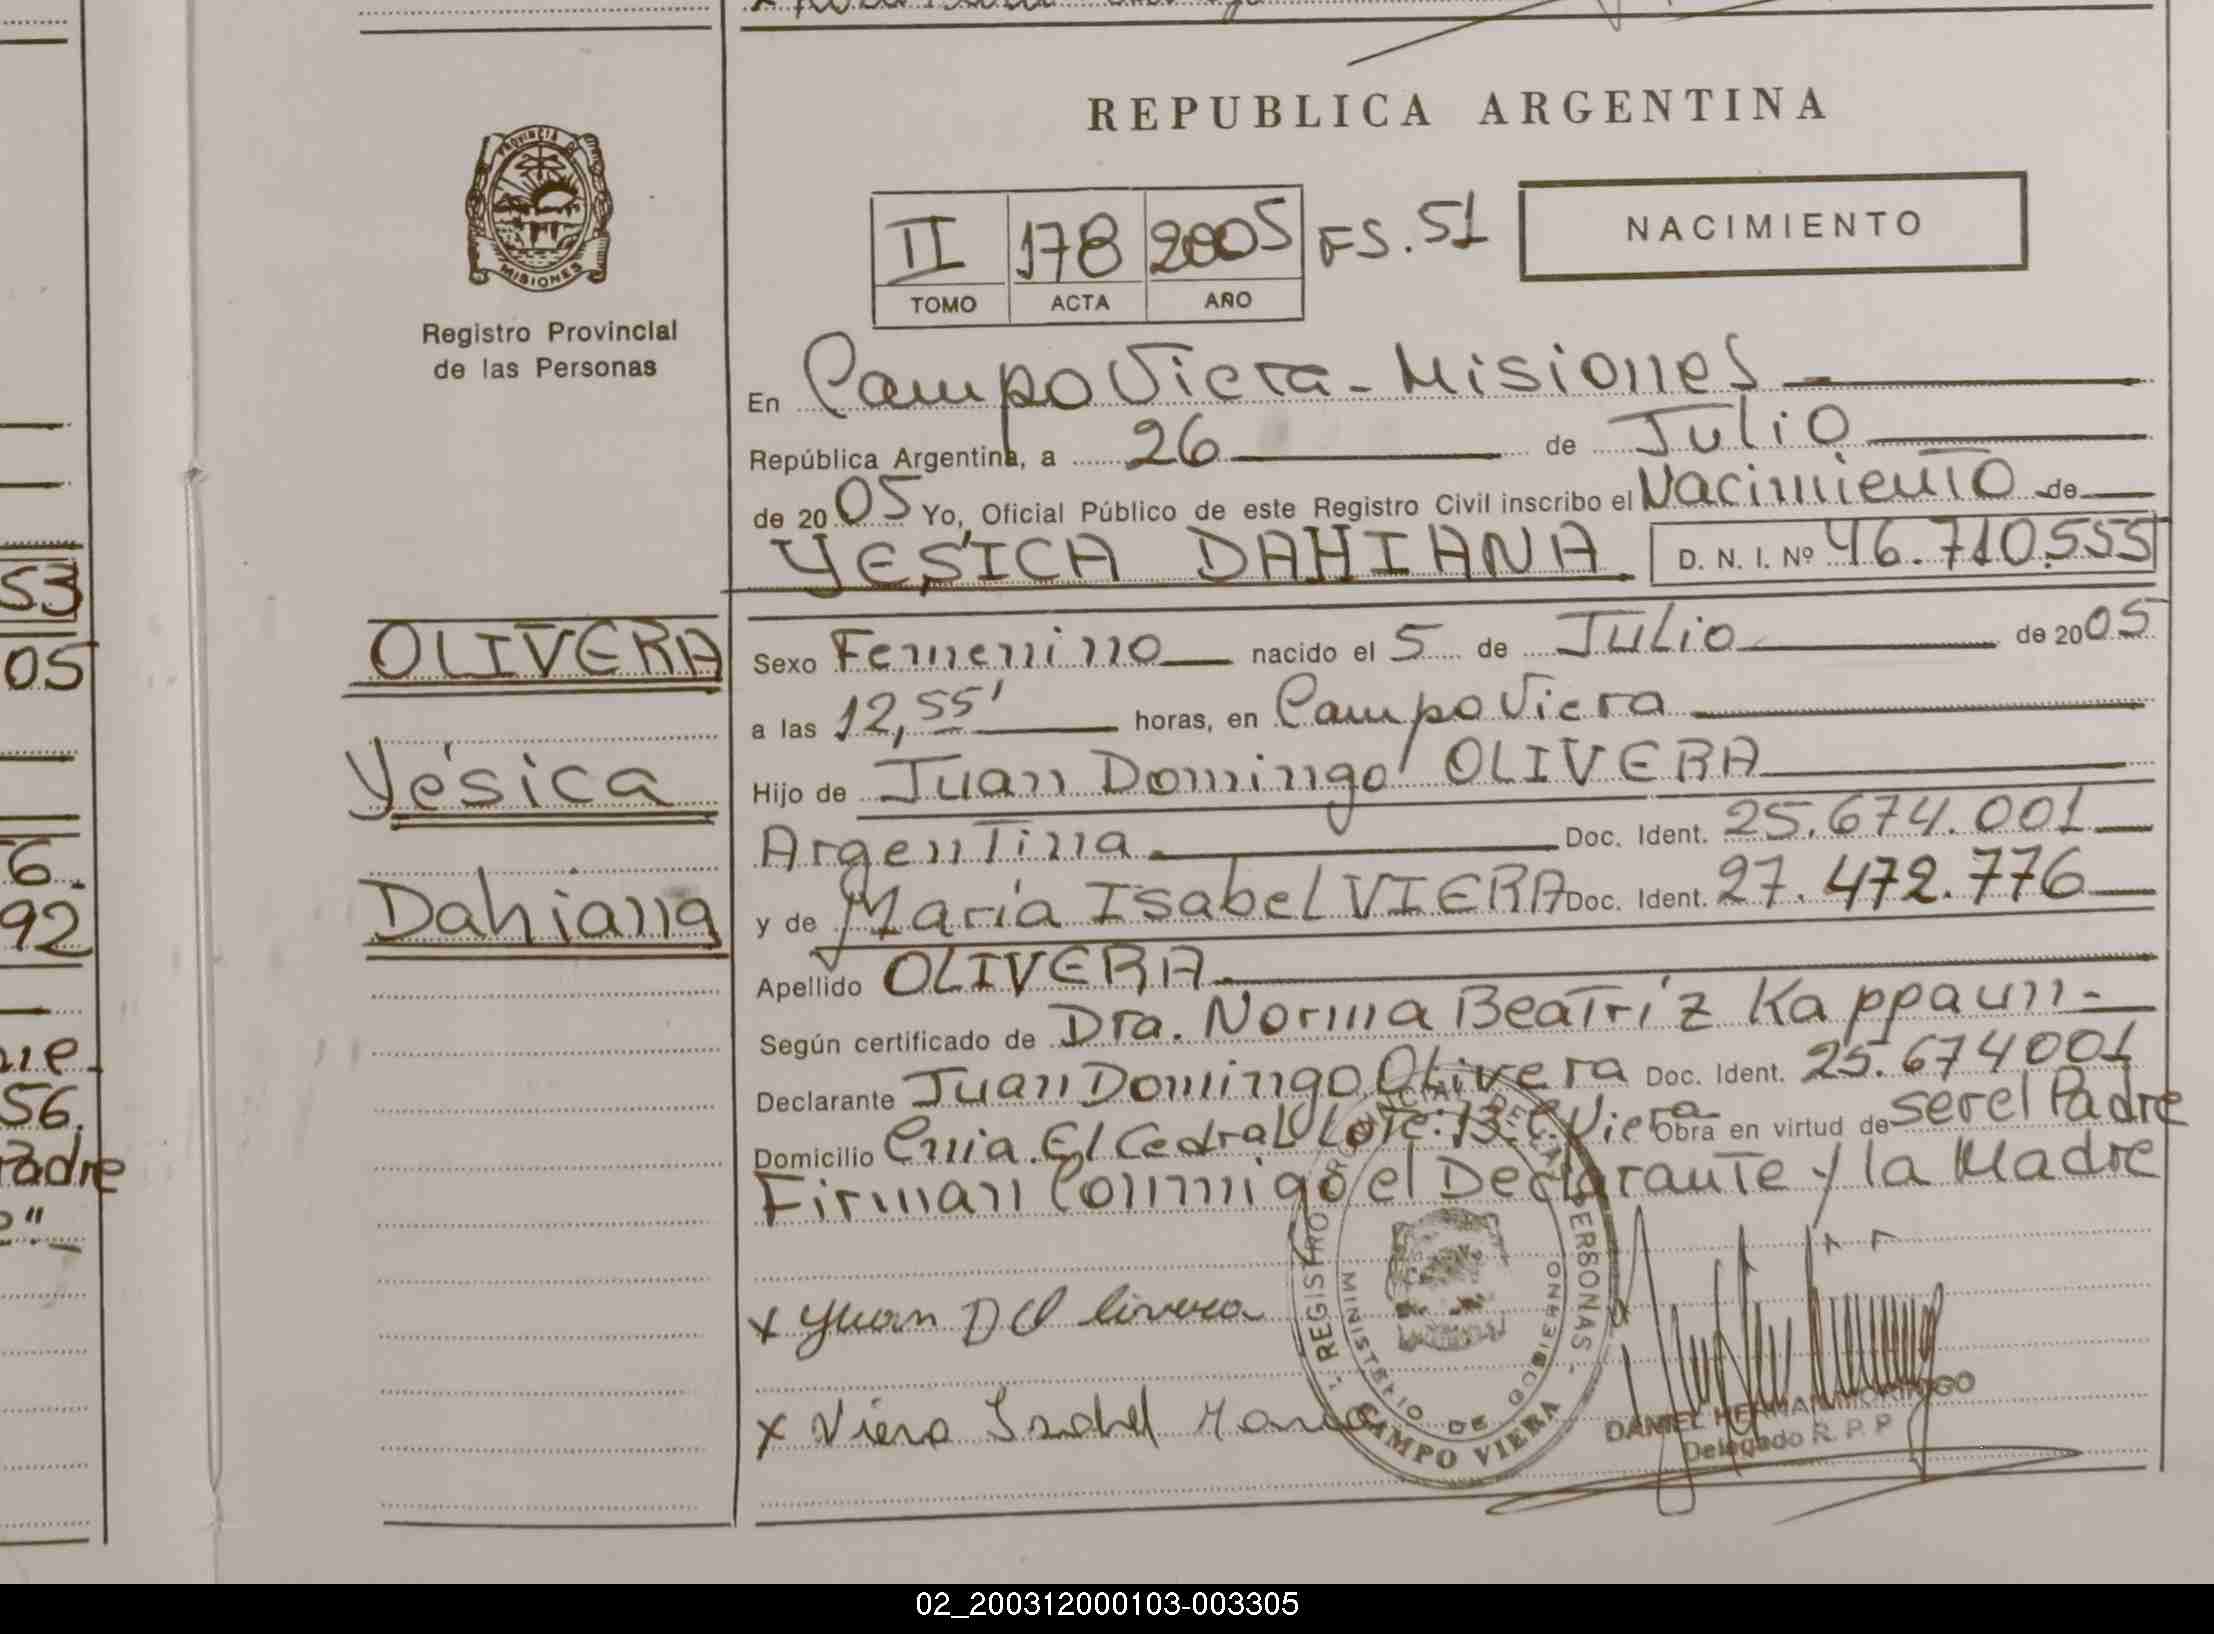 REPUBLICA ARGENTINA
PROVINCIA DE MISIONES
Registro Provincial
de las Personas
II 178 2005 FS. 51
TOMO ACTA AÑO
NACIMIENTO
En Campo Viera - Misiones
República Argentina, a 26 de Julio
de 2005 Yo, Oficial Público de este Registro Civil inscribo el Nacimiento de
YÉSICA DAHIANA D. N. I. Nº 46.710.555
OLIVERA
Yésica
Dahiana
Sexo Femenino nacido el 5 de Julio de 2005
a las 12,55' horas, en Campo Viera
Hijo de Juan Domingo OLIVERA
Argentina Doc. Ident. 25.674.001
y de María Isabel VIERA Doc. Ident. 27.472.776
Apellido OLIVERA
Según certificado de Dra. Norma Beatríz Kappaun -
Declarante Juan Domingo Olivera Doc. Ident. 25.674001
Domicilio Cnia. El Cedral Lote: 13. C. Viera Obra en virtud de ser el Padre
Firman Conmigo el Declarante y la Madre
x Juan D Olivera
x Viera Isabel Maria
REGISTRO PROVINCIAL DE LAS PERSONAS -
MINISTERIO DE GOBIERNO
CAMPO VIERA
DANIEL HERNAN MORINIGO
Delegado R. P. P
53
05
6.
92
ne
56.
Padre
02_200312000103-003305